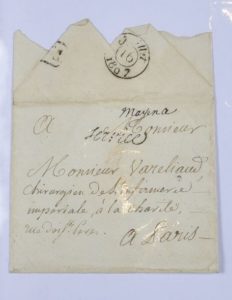 16
1807
Mayena
A Monsieur
Monsieur Vareliaud,
chirurgien de l'infirmerie
impériale, à la charité
rue des Sts Pères
A Paris